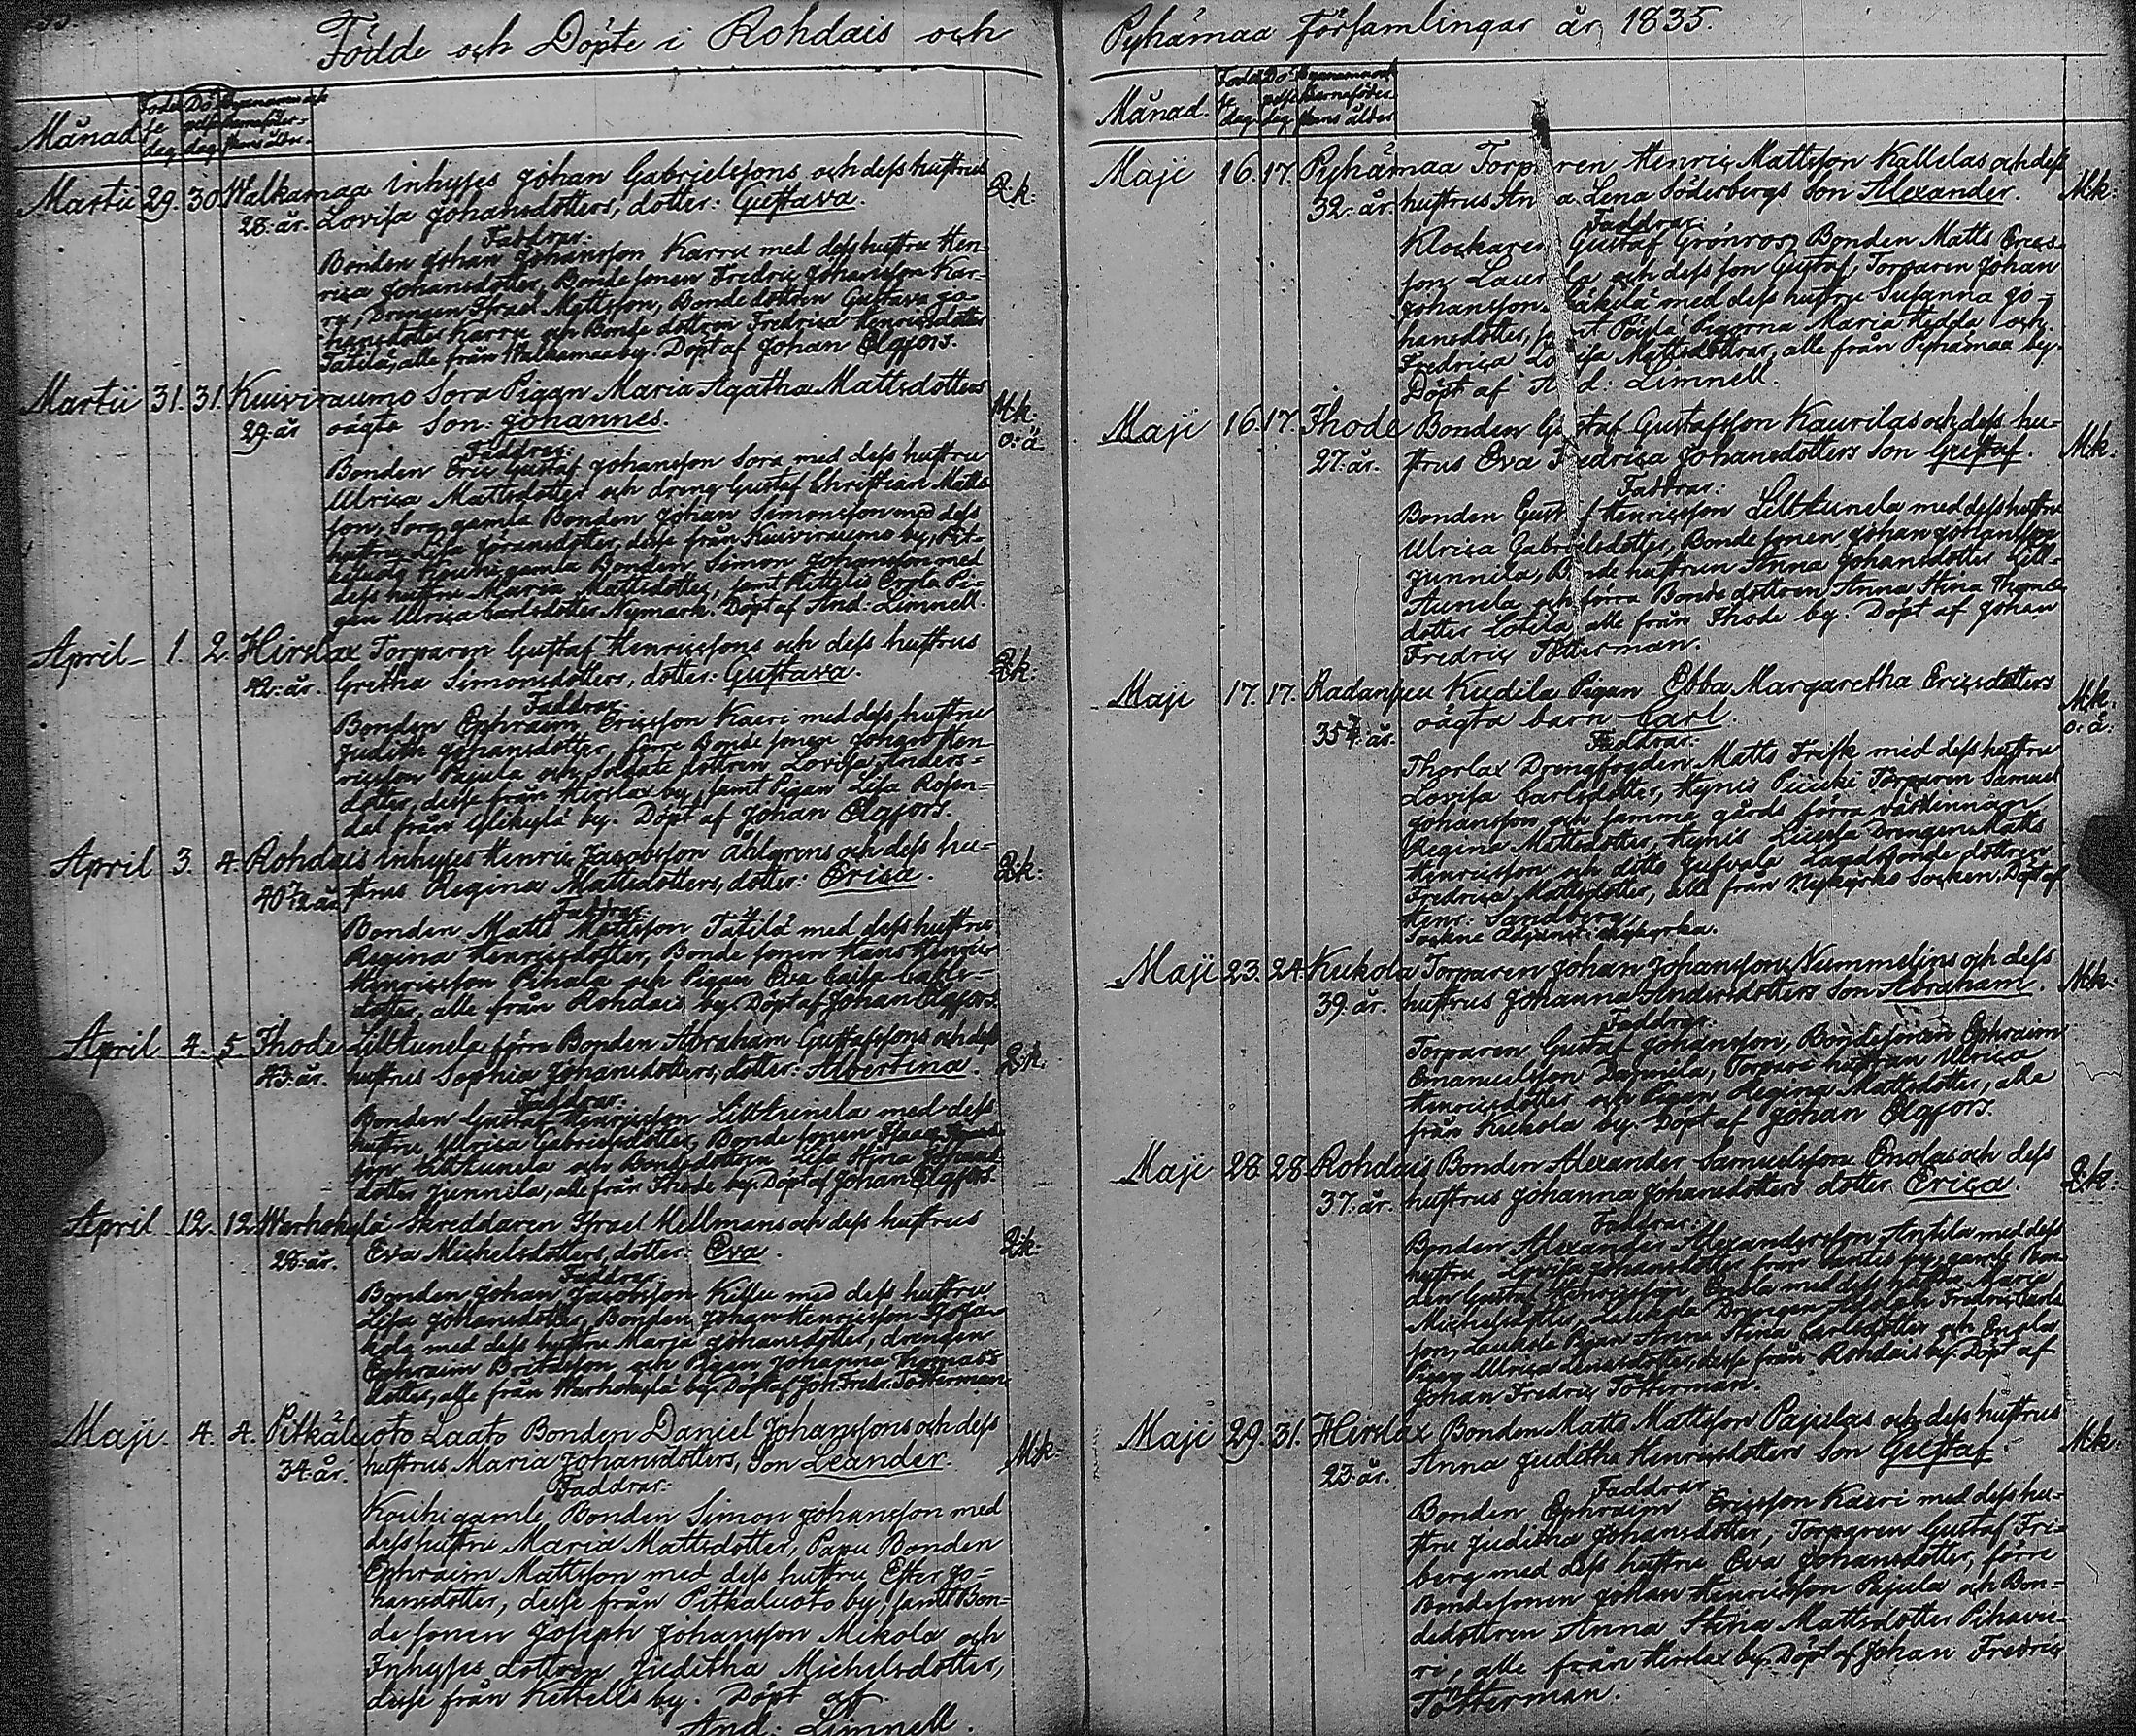 Födde och Döpte i Rohdais och
Månad
Martii 29. 30. Walkamaa Inhyses Johan Gabrielssons och dess hustrus Q.k:
28. år. Lovisa Johansdotters, dotter: Gustava.
Faddrar:
Bonden Johan Johansson Karru med dess hustru Hen-
rica Johansdotter, Bonde sonen Fredric Johansson Kar-
ru, Drengen Israel Mattsson, Bonde dottren Gustava Jo-
hansdotter Karru och Bonde dottren Fredrica Henricsdotter
Tätilä, alle från Walkamaa by. Döpt af Johan Elgfors.
Martii 31. 31. Kuiviraumo Sora Pigan Maria Agatha Mattsdotters M.k:
29. år oägta Son: Johannes. o. ä.
Faddrar:
Bonden Eric Gustaf Johansson Sora med dess hustru
Ulrica Mattsdotter och dreng Gustaf Christian Matts-
son, Sora gamla Bonden Johan Simonsson med dess
hustru Johansdotter, desse från Kuiviraumo by, Pit-
kaluoto Kouhi gamla Bonden Simon Johansson med
dess hustru Maria Mattsdotter, samt Kettelis Pi-
gan Ulrica Carlsdotter Nymark. Döpt af And: Limnell.
April 1. 2. Hirslax Torparen Gustaf Henricssons och dess hustrus Q.k:
42. år. Gretha Simonsdotters, dotter: Gustava.
Faddrar
Bonden Ephraim Ericsson Kaeri med dess hustru
Judith Johansdotter, förre Bonde sonen Johan Hen-
ricsson Pajula och Soldate dottren Lovisa Anders-
dotter, desse från Hirslax by, samt Pigan Lisa Rosen-
dal från Ylikylä by. Döpt af Johan Elgfors.
April 3. 4. Rohdais Inhyses Henric Jacobsson Åhlgrens och dess hu- Q.k:
40 år strus Regina Mattsdotters, dotter: Erica.
Faddrar:
Bonden Matts Mattsson Tätilä med dess hustru
Regina Henricsdotter, Bonde sonen Hans Henric
Henricsson Pihala och Pigan Eva Caisa
dotter, alle från Rohdais by. Döpt af Johan Elgfors.
April 4. 5. Ihode Lilltunela förre Bonden Abraham Gustafssons och dess Q.k.
43. år. hustrus Sophia Johansdotters, dotter: Albertina.
Faddrar:
Bonden Gustaf Henricsson Lilltunela med dess
hustru Ulrica Gabrielsdotter, Bonde sonen Isaac
son Lilltunela och Bondedottren Lisa Stina Johans-
dotter Junnila, alle från Ihode by. Döpt af Johan Elgfors.
April 12. 12. Warhokylä Skreddaren Israel Mellmans och dess hustrus Q.k:
28. år. Eva Michelsdotters, dotter: Eva.
Faddrar.
Bonden Johan Jacobsson Killu med dess hustru
Lisa Johansdotter, Bonden Johan Henricsson
kola med dess hustru Maria Johansdotter, drengen
Ephraim och Pigan Johanna Thomas-
dotter, alle från Warhokylä by. Döpt af Joh: Fredr: Totterman
Maji. 4. 4. Pitkäluoto Laato Bonden Daniel Johanssons och dess M.k:
34. år. hustrus Maria Johansdotters, Son Leander.
Faddrar:
Kouhi gamle Bonden Simon Johansson med
dess hustru Maria Mattsdotter, Papu Bonden
Ephraim Mattsson med dess hustru Ester Jo-
hansdotter, desse från Pitkäluoto by, samt Bon-
de sonen Joseph Johansson Mikola och
Inhyses dottren Juditha Michelsdotter,
desse från Kettelis by. Döpt af
And: Limnell.
Pyhämaa Församlingar år 1835.
Månad.
Maji 16. 17. Pyhämaa Torparen Henric Mattsson Kallelas och dess M.k:
32. år. hustrus Anna Lena Söderbergs Son Alexander.
Faddrar:
Klockaren Gustaf Grönroos, Bonden Matts Erics-
son Laurila och dess son Gustaf, Torparen Johan
Johansson med dess hustru Susanna Jo-
hansdotter, samt Pigorna Maria Hedda och
Fredrica Lovisa Mattsdöttrar, alle från Pyhämaa by.
Döpt af And: Limnell.
Maji 16. 17. Ihode Bonden Gustaf Gustafsson Kaurilas och dess hu- M.k:
27. år. strus Eva Fredrica Johansdotters Son Gustaf.
Faddrar:
Bonden Gustaf Henricsson Lilltunela med dess hustru
Ulrica Gabrielsdotter, Bonde sonen Johan Johansson
Junnila, Bonde hustrun Anna Johansdotter Lill-
tunela och förra Bonde dottren Anna Stina Thomas-
dotter Cotila, alle från Ihode by. Döpt af Johan
Fredric Totterman.
Maji 17. 17. Radanpeu Kudila Pigan Ebba Margaretha Ericsdotters M.k.
35 år. oägta barn Carl. o. ä:
Faddrar:
Thorlax Drengfogden Matts Frisk med dess hustru
Lovisa Carlsdotter, Hynis Torparen Samuel
Johansson och samma gårds förra värdinnan
Regina Mattsdotter, Hynis Drengen Matts
Henricsson och ditto Landbonde dottren
Fredrica Mattsdotter, alle från Nykyrko Socken. Döpt af
Henr: Sandberg
Sockne Adjunct i Nykyrka.
Maji 23. 24. Kukola Torparen Johan Johansson Nummelins och dess M.k:
39. år. hustrus Johanna Andersdotters Son Abraham.
Faddrar:
Torparen Gustaf Johansson, Bondesonen Ephraim
Emanuelsson Dommila, Torpare hustrun Ulrica
Henricsdotter och Pigan Regina Mattsdotter, alle
från Kukola by. Döpt af Johan Elgfors.
Maji 28. 28. Rohdais Bonden Alexander Samuelsson Onolas och dess Q.k:
37. år. hustrus Johanna Johansdotters dotter Erica.
Faddrar:
Bonden Alexander Alexandersson Antila med dess
hustru Lovisa Johansdotter från by, gamle Bon-
den Gustaf Henricsson Onola med dess hustru Maria
Michelsdotter, Drengen Adolph Fredric Carls-
son, Laukola Pigan Anna Stina Carlsdotter och Onolas
Pigan Ulrica dotter, desse från Rohdais by. Döpt af
Johan Fredric Totterman.
Maji 29. 31. Hirslax Bonden Matts Mattsson Pajulas och dess hustrus M.k:
23. år. Anna Juditha Henricsdotters Son Gustaf.
Faddrar
Bonden Ephraim Ericsson Kaeri med dess hu-
stru Juditha Johansdotter, Torparen Gustaf Fri-
berg med dess hustru Eva Johansdotter, förre
Bondesonen Johan Henricsson Pajula och Bon-
dedottren Anna Stina Mattsdotter Pihavu-
ri, alle från Hirslax by. Döpt af Johan Fredric
Totterman.